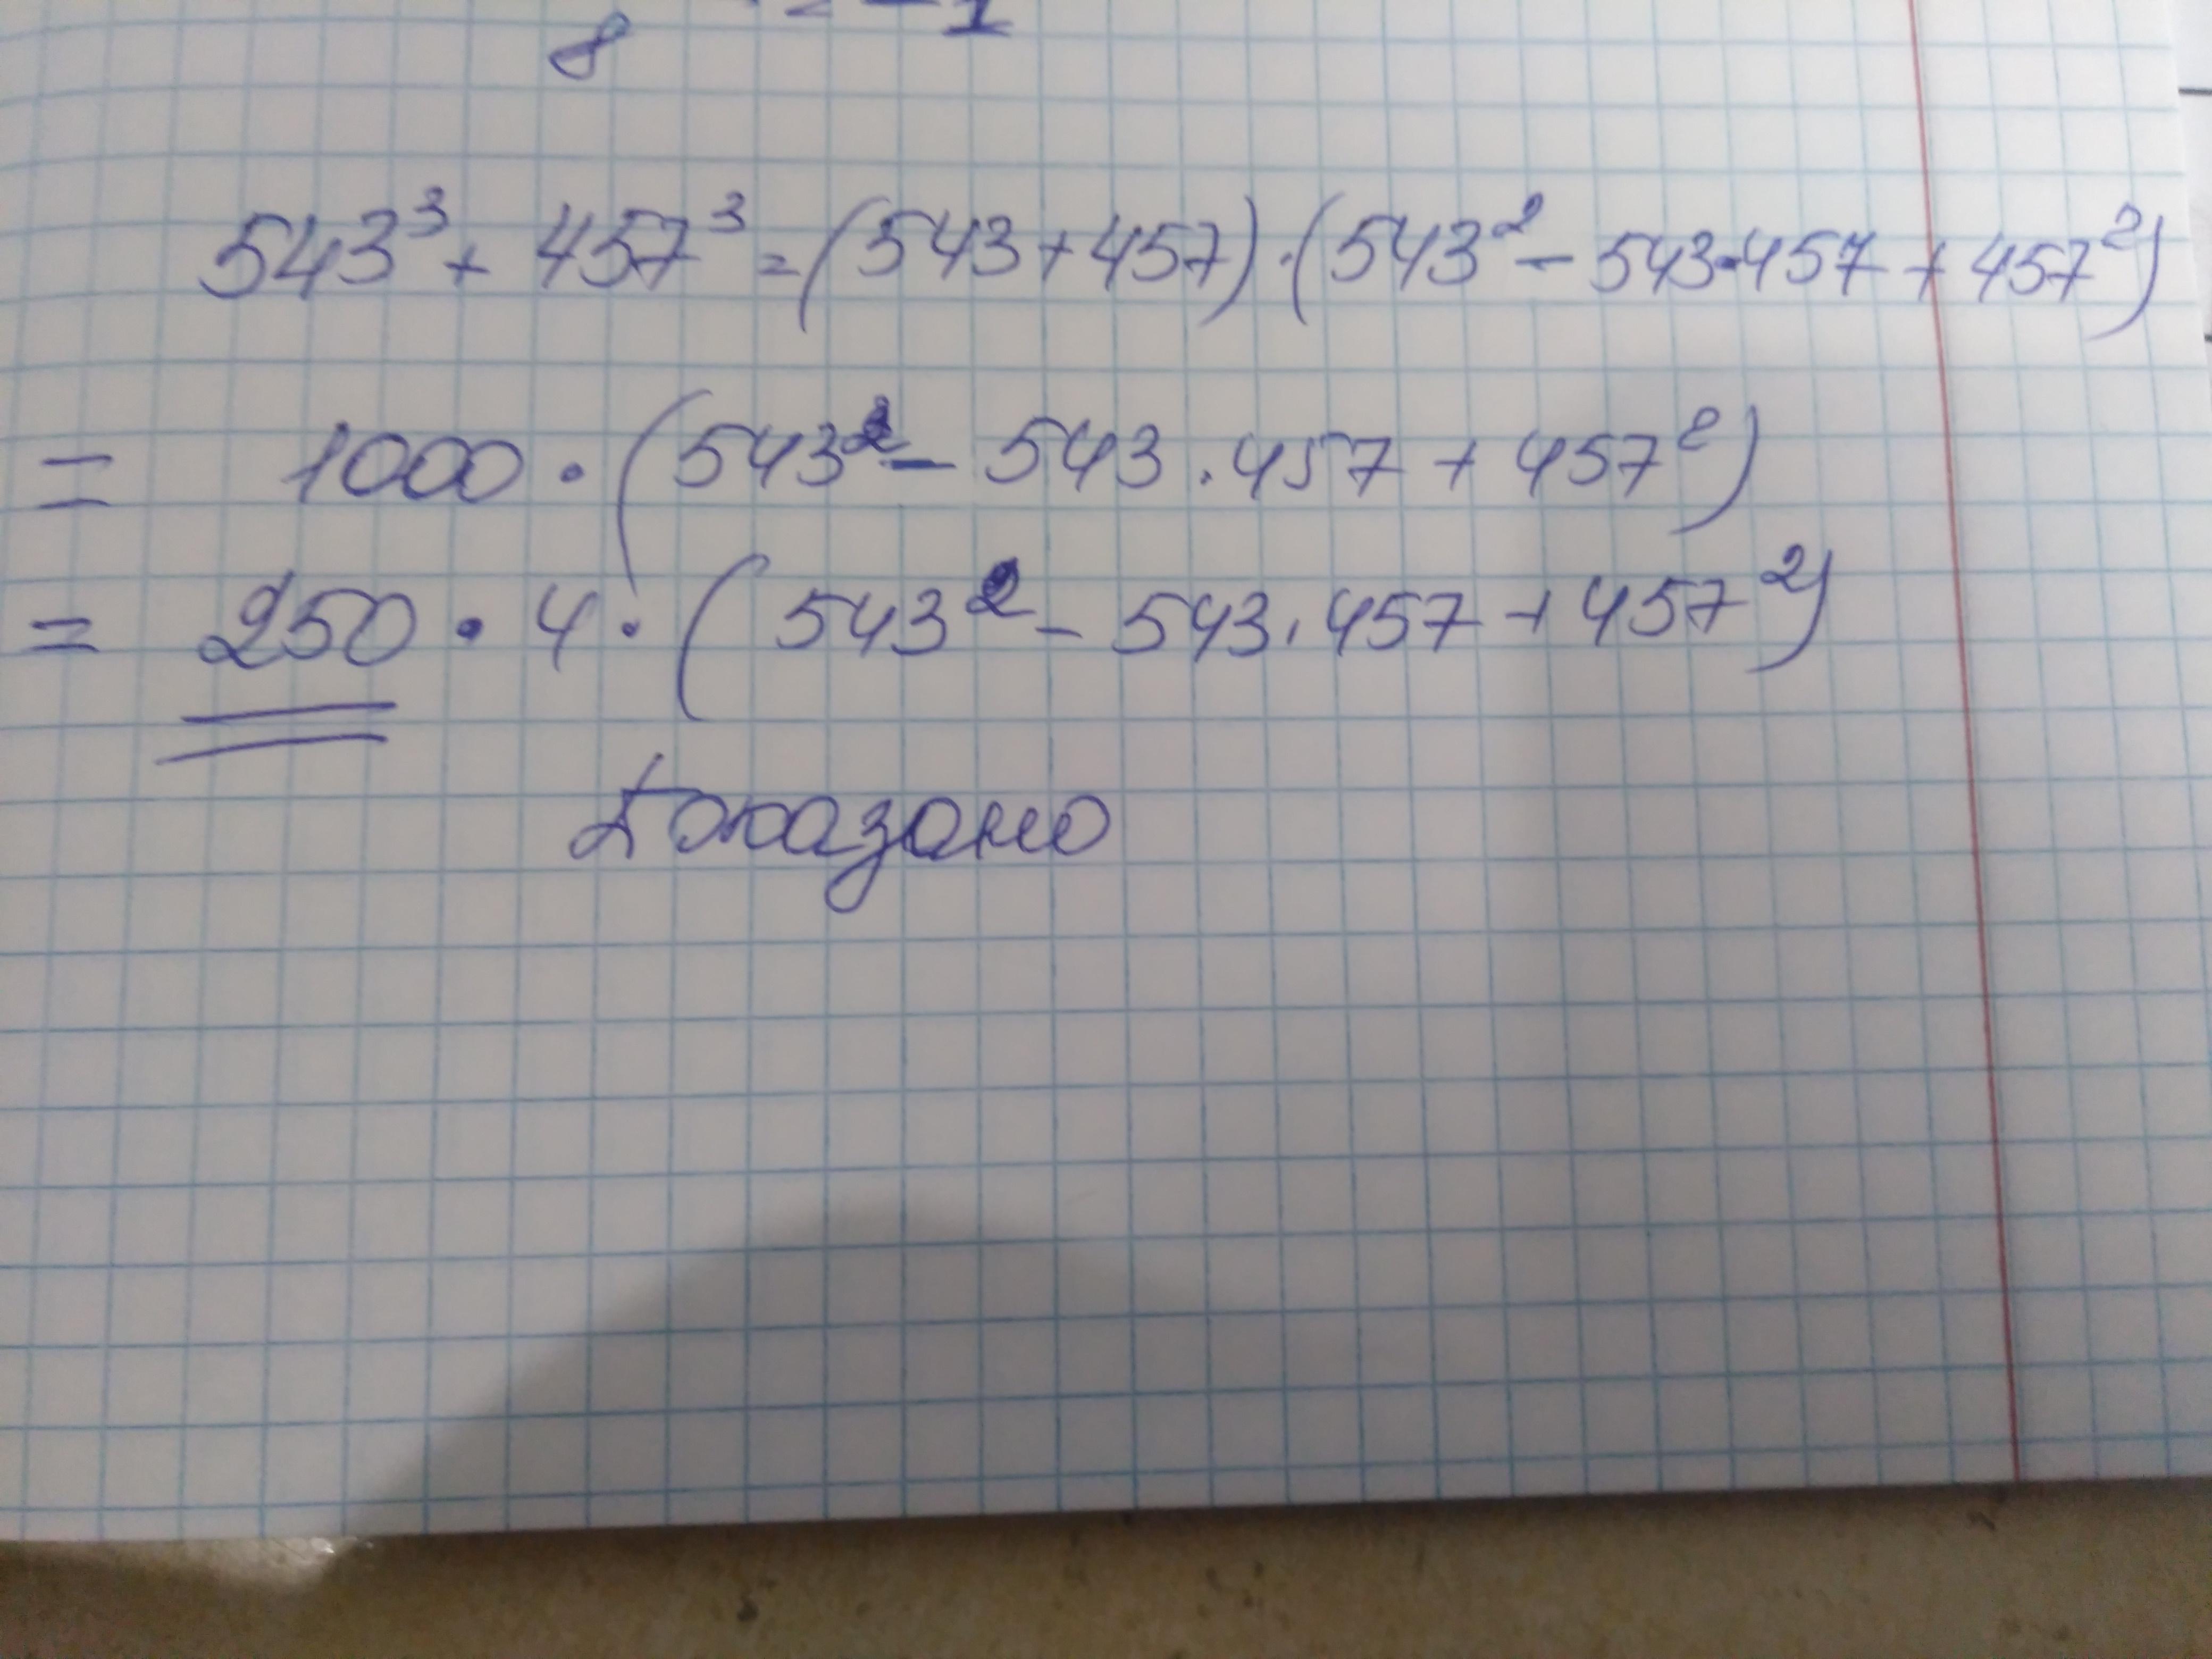 8 = -1
543³ + 457³ = (543 + 457) · (543² - 543·457 + 457²)
= 1000 · (543² - 543 · 457 + 457²)
= 250 · 4 · (543² - 543 · 457 + 457²)
Доказано